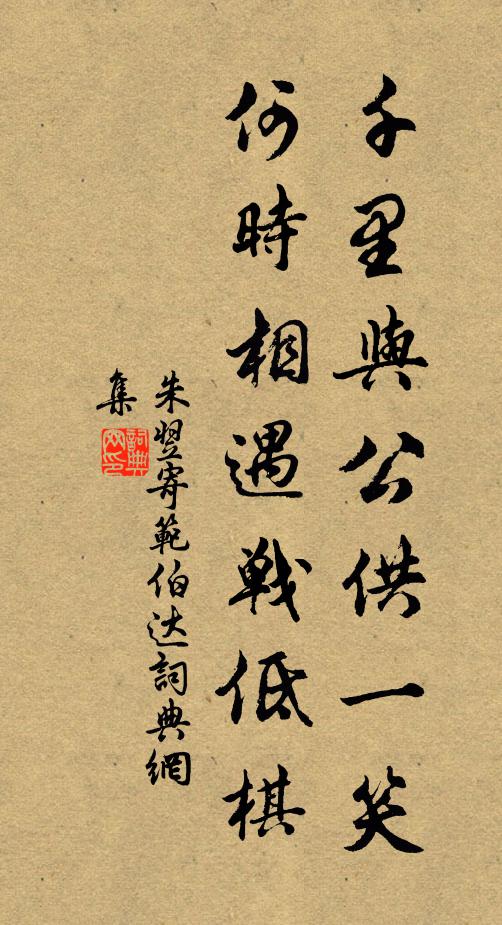 千里與公供一笑
何時相遇戰低棋
朱翌寄範伯达詞典網
集
詞典
网印